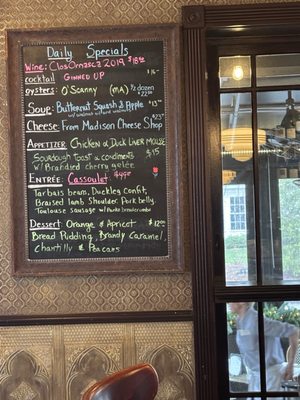 Daily Specials
Wine: Clos Ornasca 2019 $18
cocktail GINNED UP $16
oysters: O'Scanny (MA) ½ dozen
Soup: Butternut Squash & Apple $13
Cheese: From Madison Cheese Shop $23
Appetizer: Chicken & Duck Liver MOUSE
Sourdough Toast & condiments $15
w/ Brandied cherry gelée
Entrée: Cassoulet
Tarbais beans, Duck leg Confit,
Braised lamb Shoulder Pork belly,
Toulouse Sausage w/ breadcrumbs
Dessert: Orange & Apricot $12
Bread Pudding, Brandy Caramel,
Chantilly & Pecans